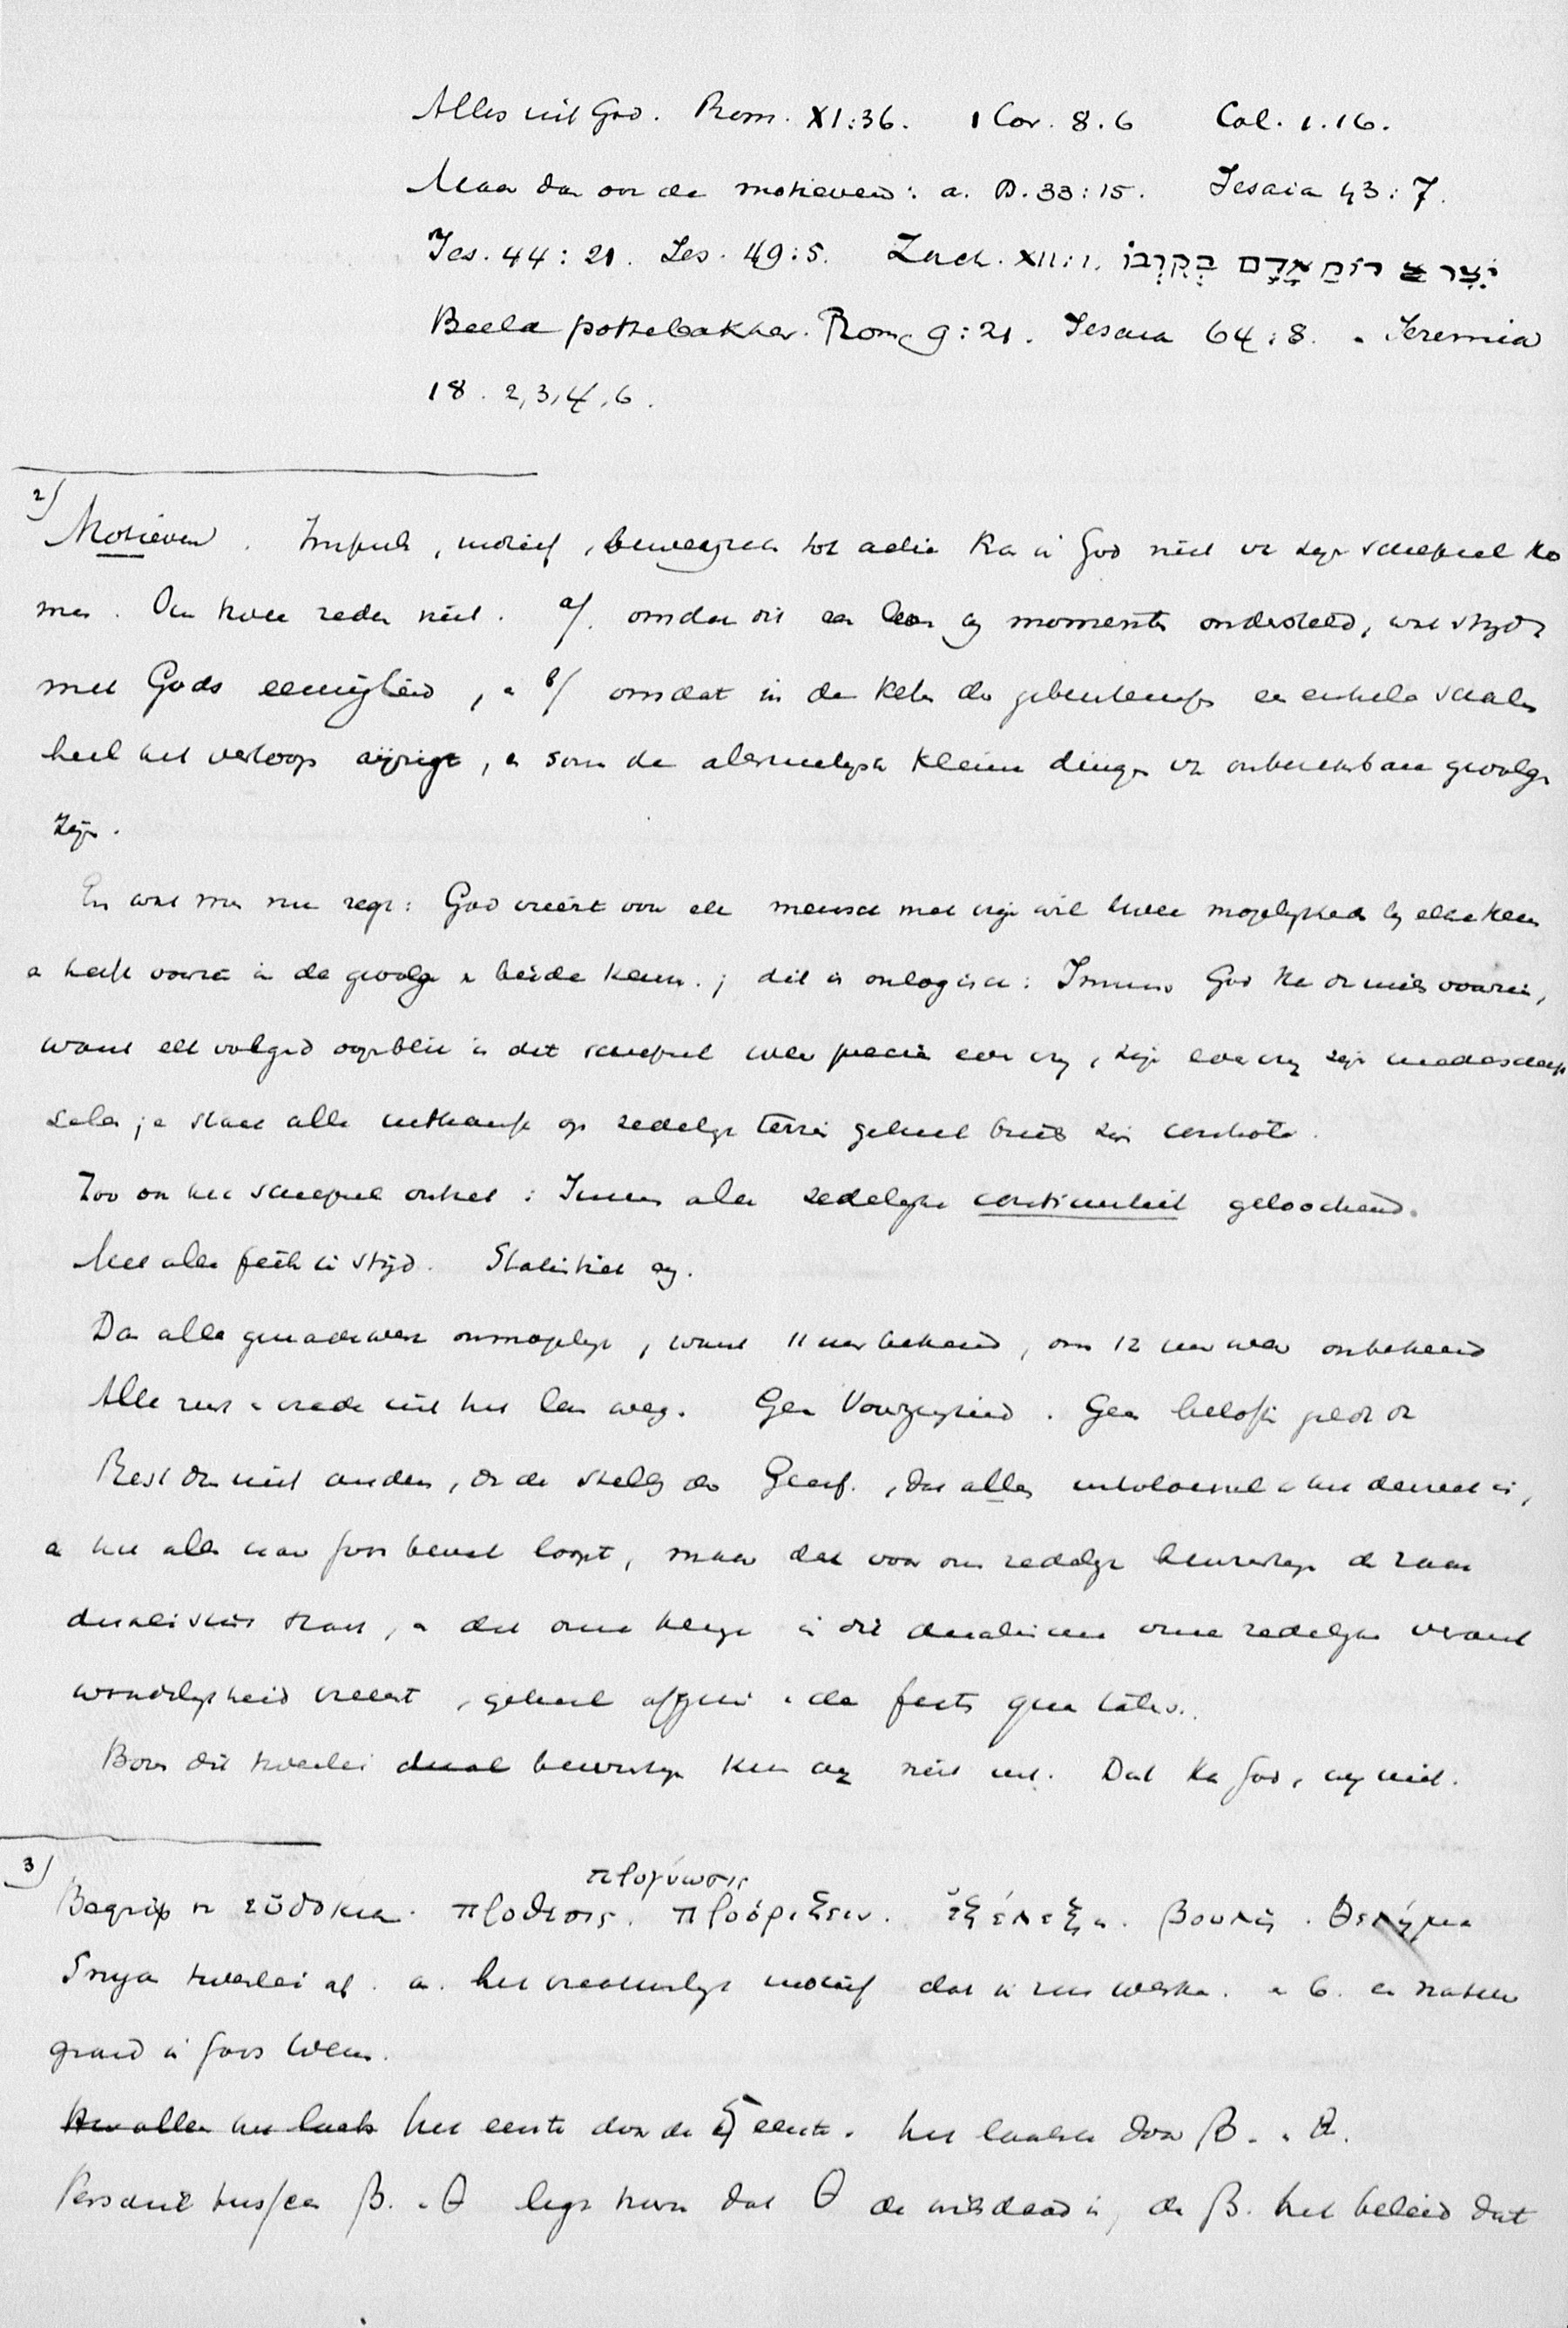 Alles uit God. Rom. XI:36. 1 Cor. 8.6 Col. 1.16.
Maar dan oor de motieven: a. Ps. 33:15. Jesaia 43:7.
Jes. 44:21. Jes. 49:5. Zach. XII:1. יֹצֵר רוּחַ אָדָם בְּקִרְבּוֹ
Beeld pottebakker. Rom 9:21. Jesaia 64:8. Jeremia
18. 2,3,4,6.
2)
Motieven. Impuls, motief, beweegreden tot actie kan in God niet uit zijn schepsel ko
men. Om twee reden niet. a/. omdat dit een momenten onderstelt, wat strijdt
met Gods eenigheid, en b/ omdat in de keten der gebeurtenissen een enkele schakel
heel het verloop wijzigt, en soms de allernietigste kleine dingen van onberekenbare gevolgen
zijn.
En wat men nu zegt: God creëert voor elk mensch met vrije wil twee mogelijkheden
en heeft voorzien in de gevolgen beide keeren; dit is onlogisch: Immers God kan dan niets voorzien,
want elk volgend oogenblik is dat schepsel weer precies even vrij, zijn even vrij zijn medeschep
selen, en staat alle uitkomst op zedelijk terrein geheel buiten zijn controle.
Zoo ook het schepsel ontzet: Immers alle zedelijke continuiteit geloochend.
Met alle feiten in strijd. Statistiek
Dan alle genadewerk onmogelijk, want 11 uur bekeerd, om 12 uur weer onbekeerd
Alle rust en vrede uit het leven weg. Geen Voorzienigheid. Geen belofte
Rest dus niet anders, dan de stelling der Geref., dat alles
en het alles naar Gods bestel loopt, maar dat voor ons zedelijk bewustzijn de zaak
dualistisch staat, en dat onze keuze in dit dualisme onze zedelijke verant
woordelijkheid creëert, geheel afgezien van de feiten qua tales.
Boven dit tweeerlei bewustzijn kunnen wij niet uit. Dat kan God, wij niet.
3)
προγνωσις
Begrip van εὐδοκια. προθεσις. προόριζειν. ἐξέλεξα. βουλὴ. θελήμα
Snijden tweeerlei af. a. het creatuurlijk motief dat in zou werken. en b. een natuur
grond in Gods Wezen.
het eerste door de 5 eerste. het laatste door β. en θ.
Verschil tusschen β. en θ ligt hierin dat θ de wilsdaad is, de β. het beleid dat